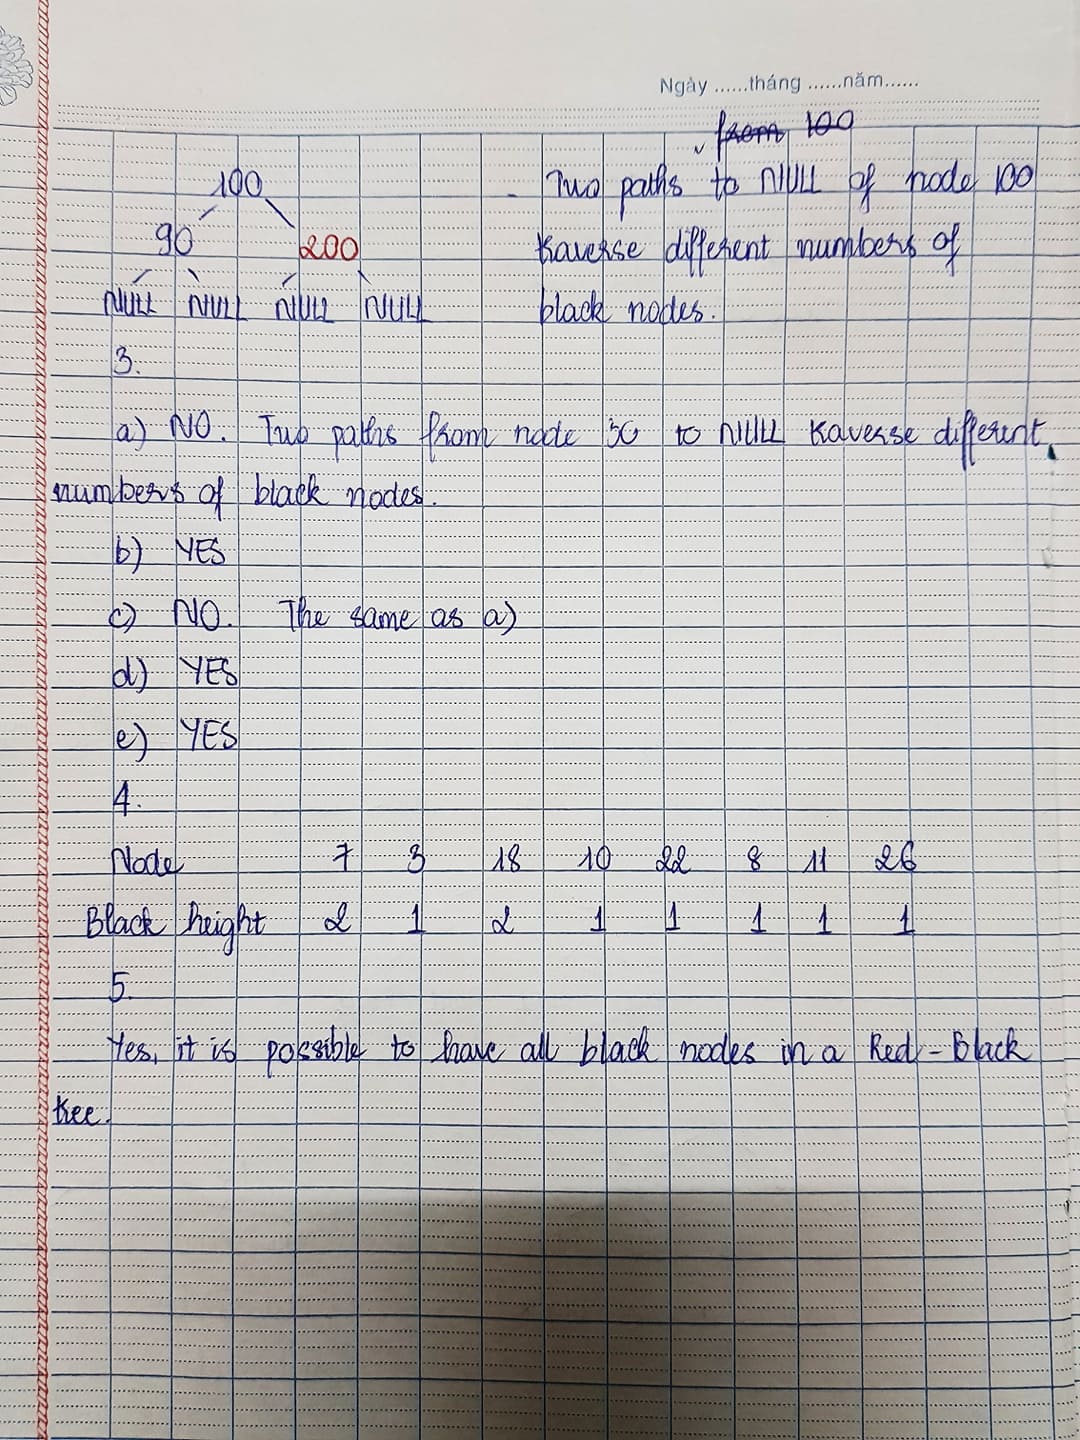 Ngày ......tháng ......năm......
from 100
100 - Two paths to NULL of node 100
90 200 traverse different numbers of
NULL NULL NULL NULL black nodes.
3.
a) NO. Two paths from node 30 to NULL traverse different
numbers of black nodes.
b) YES
c) NO. The same as a)
d) YES
e) YES
4.
Node 7 3 18 10 22 8 11 26
Black height 2 1 2 1 1 1 1 1
5.
Yes, it is possible to have all black nodes in a Red-Black
tree.